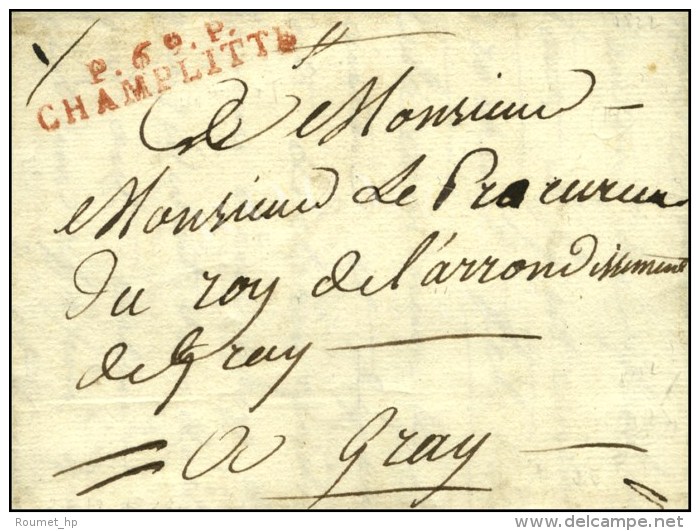 P. 69. P.
CHAMPLITTE
A Monsieur
Monsieur Le Procureur
Du roy de l'arrondissement
de Gray
A Gray
Roumet_hp
www.delcampe.net